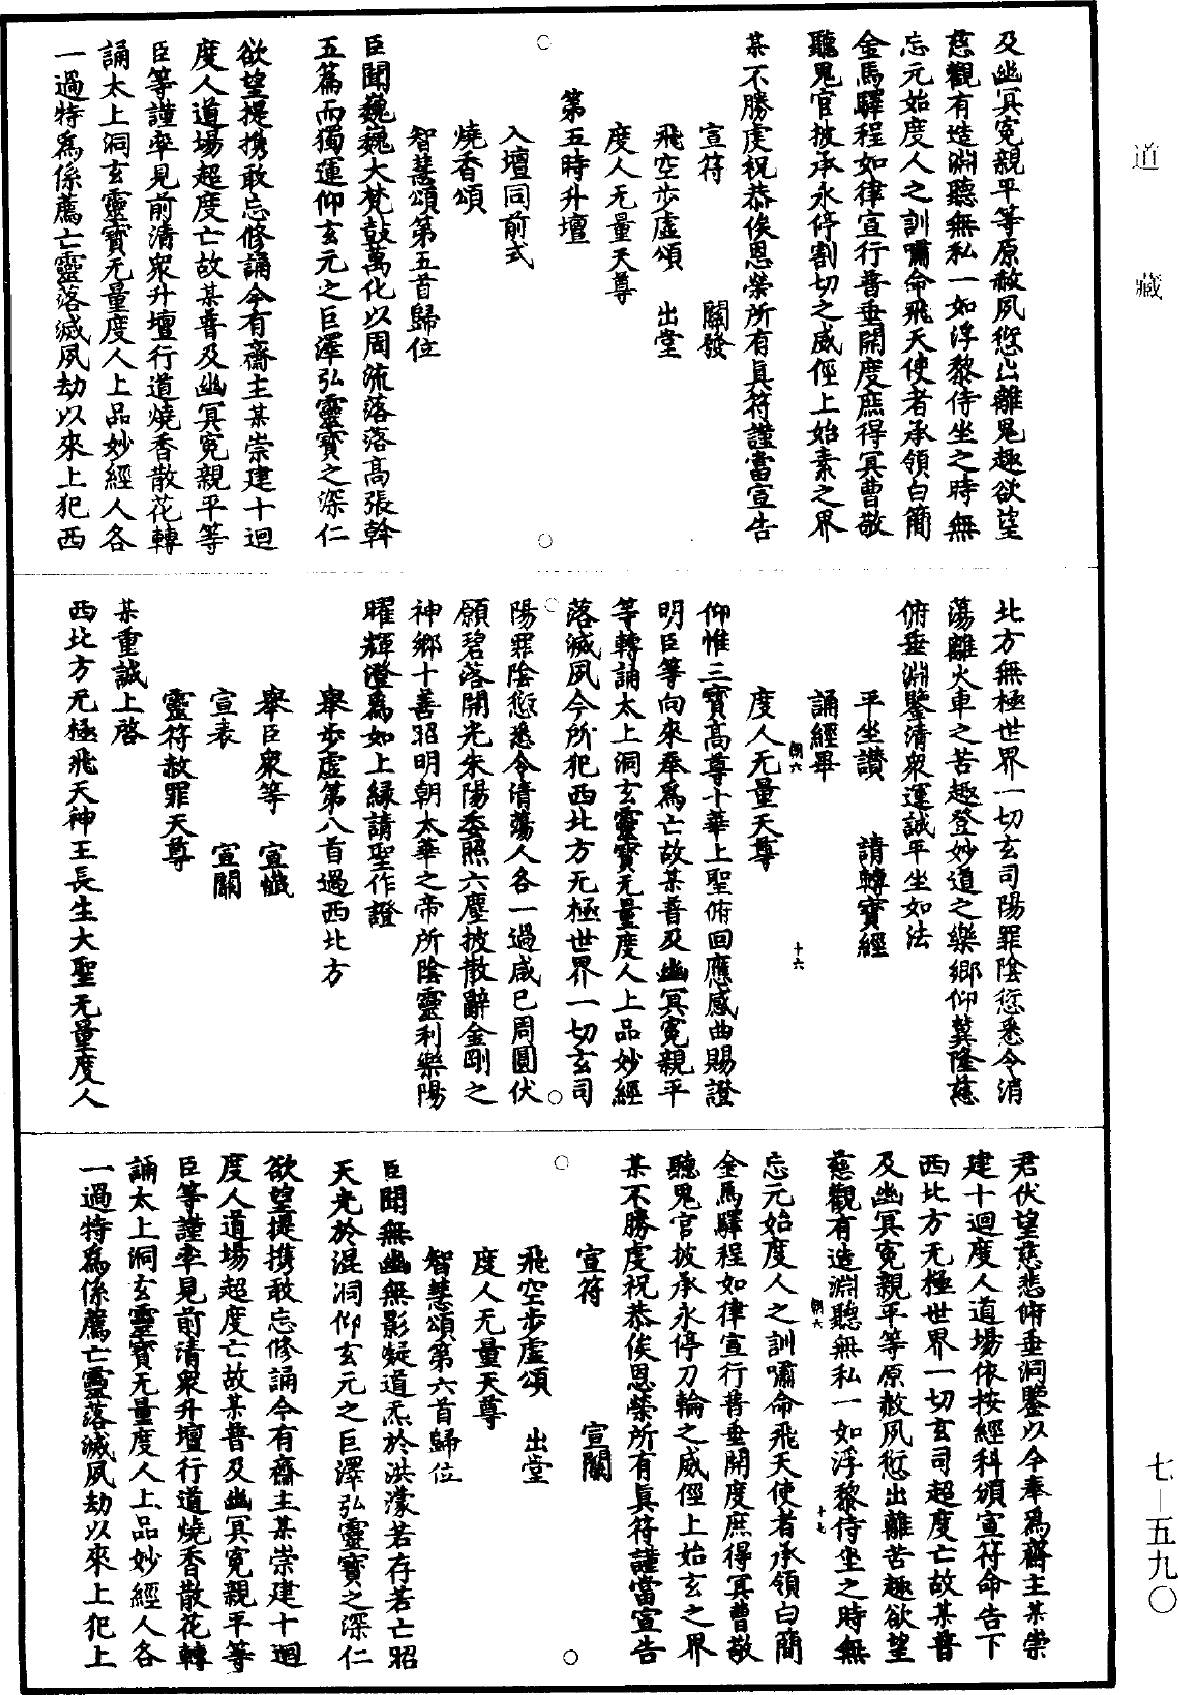 道藏
七—五九〇
及幽冥冤親平等原赦夙愆出離鬼趣欲望
慈觀有造淵聽無私一如浮黎侍坐之時無
忘元始度人之訓嘯命飛天使者承領白簡
金馬驛程如律宣行普垂開度庶得冥曹敬
聽鬼官披承永停割切之威徑上始素之界
某不勝虔祝恭俟恩榮所有真符謹當宣告
宣符　關發
飛空步虛頌　出堂
度人无量天尊
第五時升壇
入壇同前式
燒香頌
智慧頌第五首歸位
臣聞巍巍大梵鼓萬化以周流落落高張幹
五篇而獨運仰玄元之巨澤弘靈寶之深仁
欲望提携敢忘修誦今有齋主某崇建十迴
度人道場超度亡故某普及幽冥冤親平等
臣等謹率見前清衆升壇行道燒香散花轉
誦太上洞玄靈寶无量度人上品妙經人各
一過特為係薦亡靈落滅夙劫以來上犯西
北方無極世界一切玄司陽罪陰愆悉令消
蕩離火車之苦趣登妙道之樂鄉仰冀隆慈
俯垂淵鑒清衆運誠平坐如法
平坐讚　請轉寶經
誦經畢
朝六　十六
度人无量天尊
仰惟三寶高尊十華上聖俯回應感曲賜證
明臣等向來奉為亡故某普及幽冥冤親平
等轉誦太上洞玄靈寶无量度人上品妙經
落滅夙今所犯西北方无極世界一切玄司
陽罪陰愆悉令清蕩人各一過咸已周圓伏
願碧落開光朱陽委照六塵披散辭金剛之
神鄉十善昭明朝太華之帝所陰靈利樂陽
曜輝澄為如上緣請聖作證
舉步虛第八首過西北方
舉臣衆等　宣懺
宣表　宣關
靈符赦罪天尊
某重誠上啓
西北方无極飛天神王長生大聖无量度人
君伏望慈悲俯垂洞鑒以今奉為齋主某崇
建十迴度人道場依按經科頒宣符命告下
西北方无極世界一切玄司超度亡故某普
及幽冥冤親平等原赦夙愆出離苦趣欲望
慈觀有造淵聽無私一如浮黎侍坐之時無
朝六　十七
忘元始度人之訓嘯命飛天使者承領白簡
金馬驛程如律宣行普垂開度庶得冥曹敬
聽鬼官披承永停刀輪之威徑上始玄之界
某不勝虔祝恭俟恩榮所有真符謹當宣告
宣符　宣關
飛空步虛頌　出堂
度人无量天尊
智慧頌第六首歸位
臣聞無幽無影凝道炁於洪濛若存若亡昭
天光於混洞仰玄元之巨澤弘靈寶之深仁
欲望提携敢忘修誦今有齋主某崇建十迴
度人道場超度亡故某普及幽冥冤親平等
臣等謹率見前清衆升壇行道燒香散花轉
誦太上洞玄靈寶无量度人上品妙經人各
一過特為係薦亡靈落滅夙劫以來上犯上